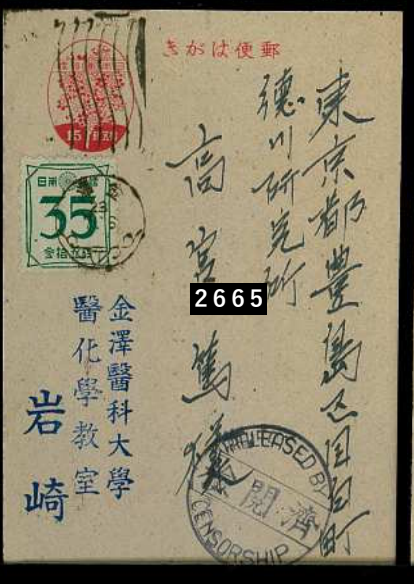 郵便はがき
東京都豊島区目白町
徳川研究所
高宮篤様
日本郵便
35
参拾五銭
15
2665
金澤醫科大學
醫化學教室
岩崎
RELEASED BY
閲済
CENSORSHIP